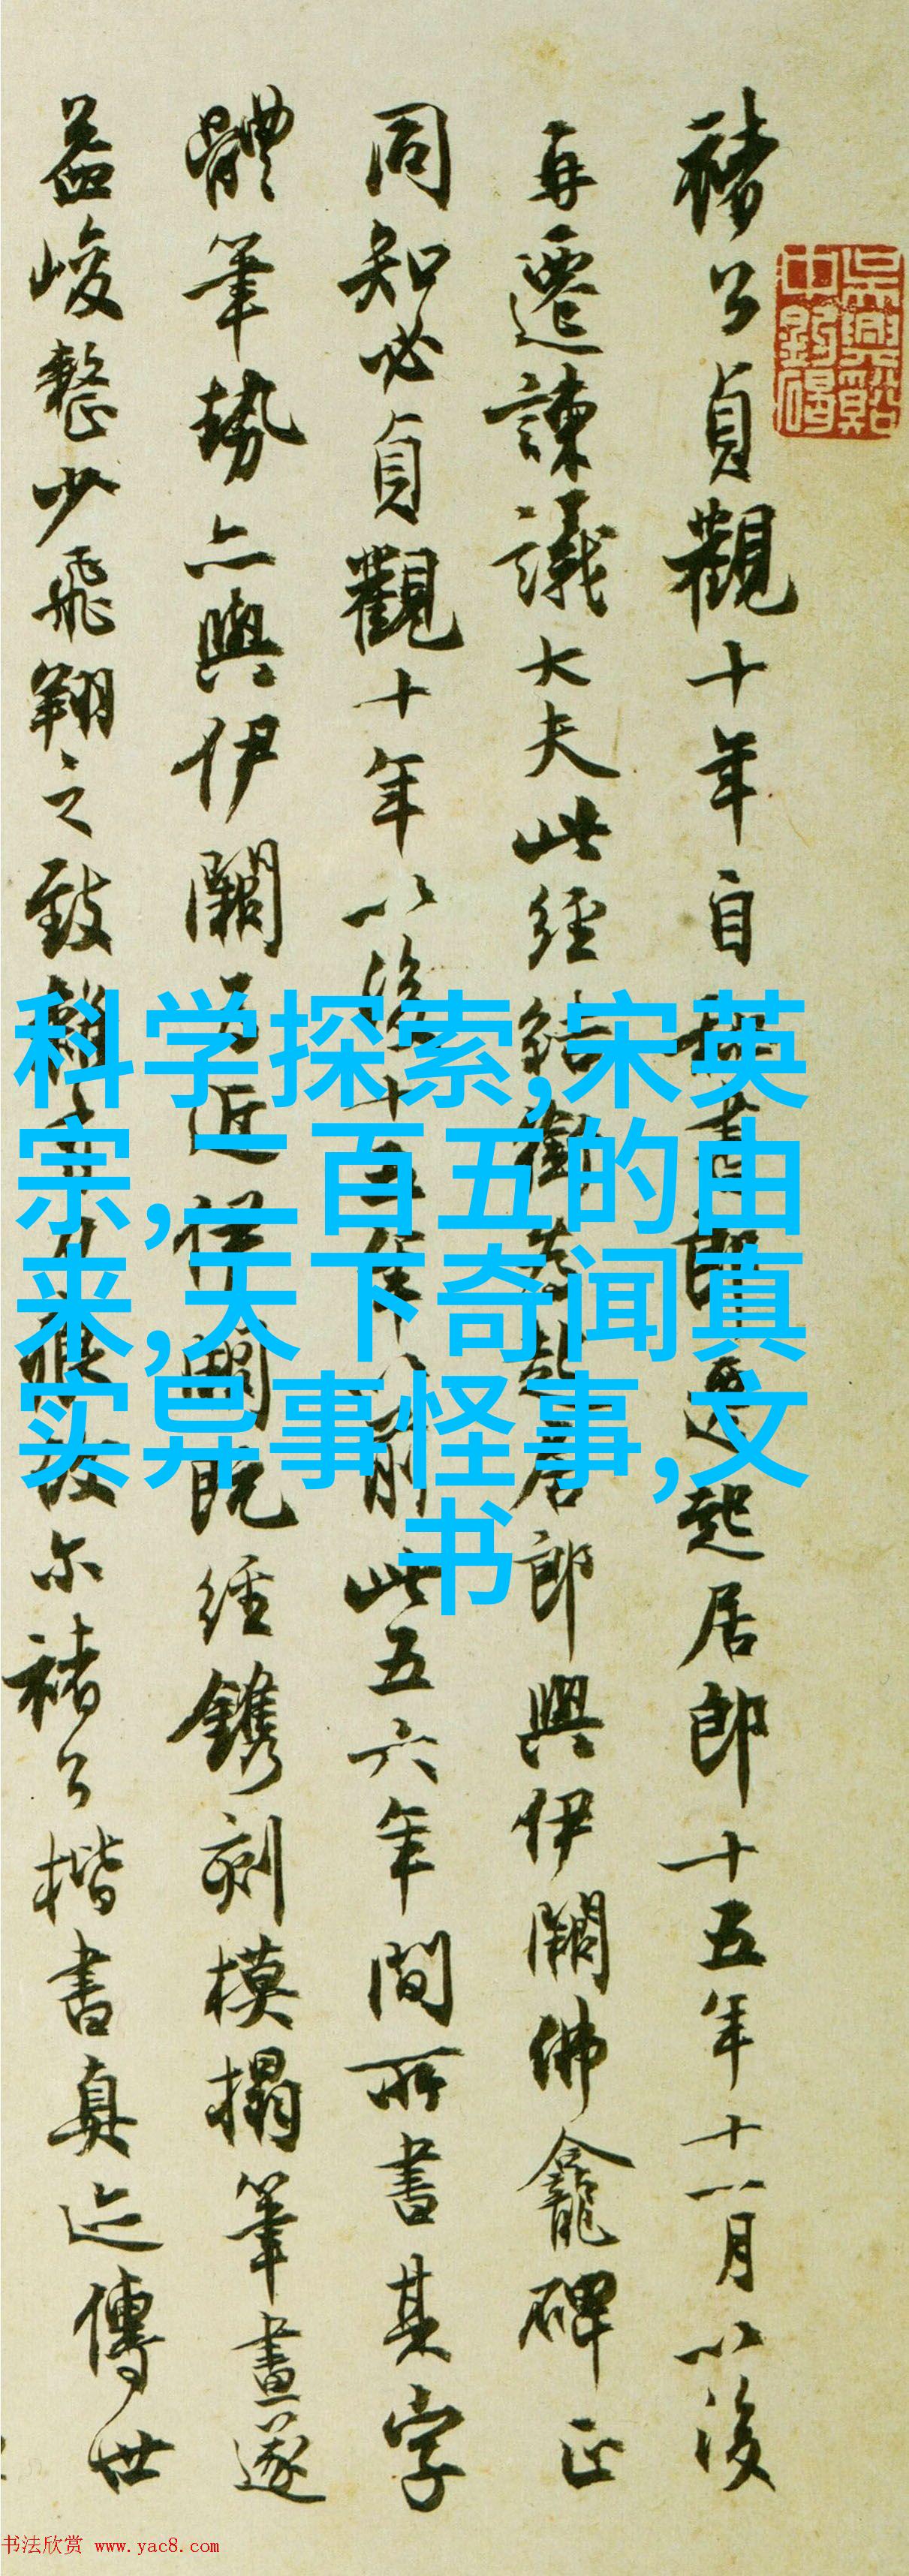 褚公貞觀十年自秘書郎遷起居郎十五年十一月以後
再遷諫議大夫此經結銜為起居郎與伊闕佛龕碑正
同知必貞觀十年以後十五年以前此五六年間所書其字
體筆勢亦與伊闕為近伊闕既經鐫刻模搨筆畫遂
益峻整少飛翔之致尔褚公楷書真迹傳世
科学探索,宋英
宗,二百五的由
来,天下奇闻真
实异事怪事,文
书
书法欣赏 www.yac8.com